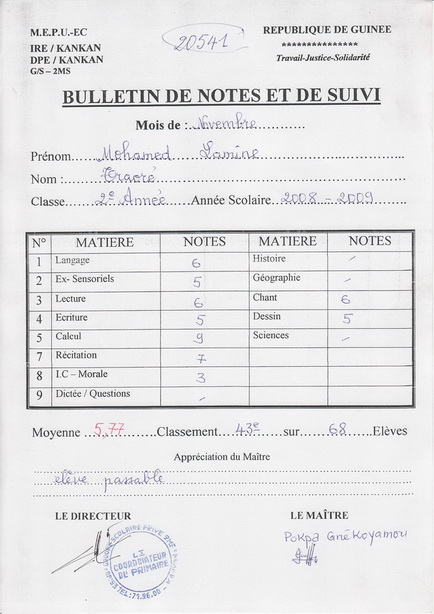 M.E.P.U.-EC
20541
REPUBLIQUE DE GUINEE
IRE / KANKAN
***************
DPE / KANKAN
Travail-Justice-Solidarité
G/S – 2MS
BULLETIN DE NOTES ET DE SUIVI
Mois de : Novembre
Prénom Mohamed Lamine
Nom : Traoré
Classe 2e Année Année Scolaire 2008 - 2009
N° MATIERE NOTES MATIERE NOTES
1 Langage 6 Histoire -
2 Ex- Sensoriels 5 Géographie -
3 Lecture 6 Chant 6
4 Ecriture 5 Dessin 5
5 Calcul 9 Sciences -
7 Récitation 7
8 I.C – Morale 3
9 Dictée / Questions -
Moyenne 5,77 Classement 43e sur 68 Elèves
Appréciation du Maître
élève passable
LE DIRECTEUR LE MAÎTRE
LE COORDINATEUR DU PRIMAIRE
Pokpa Gnékoyamou